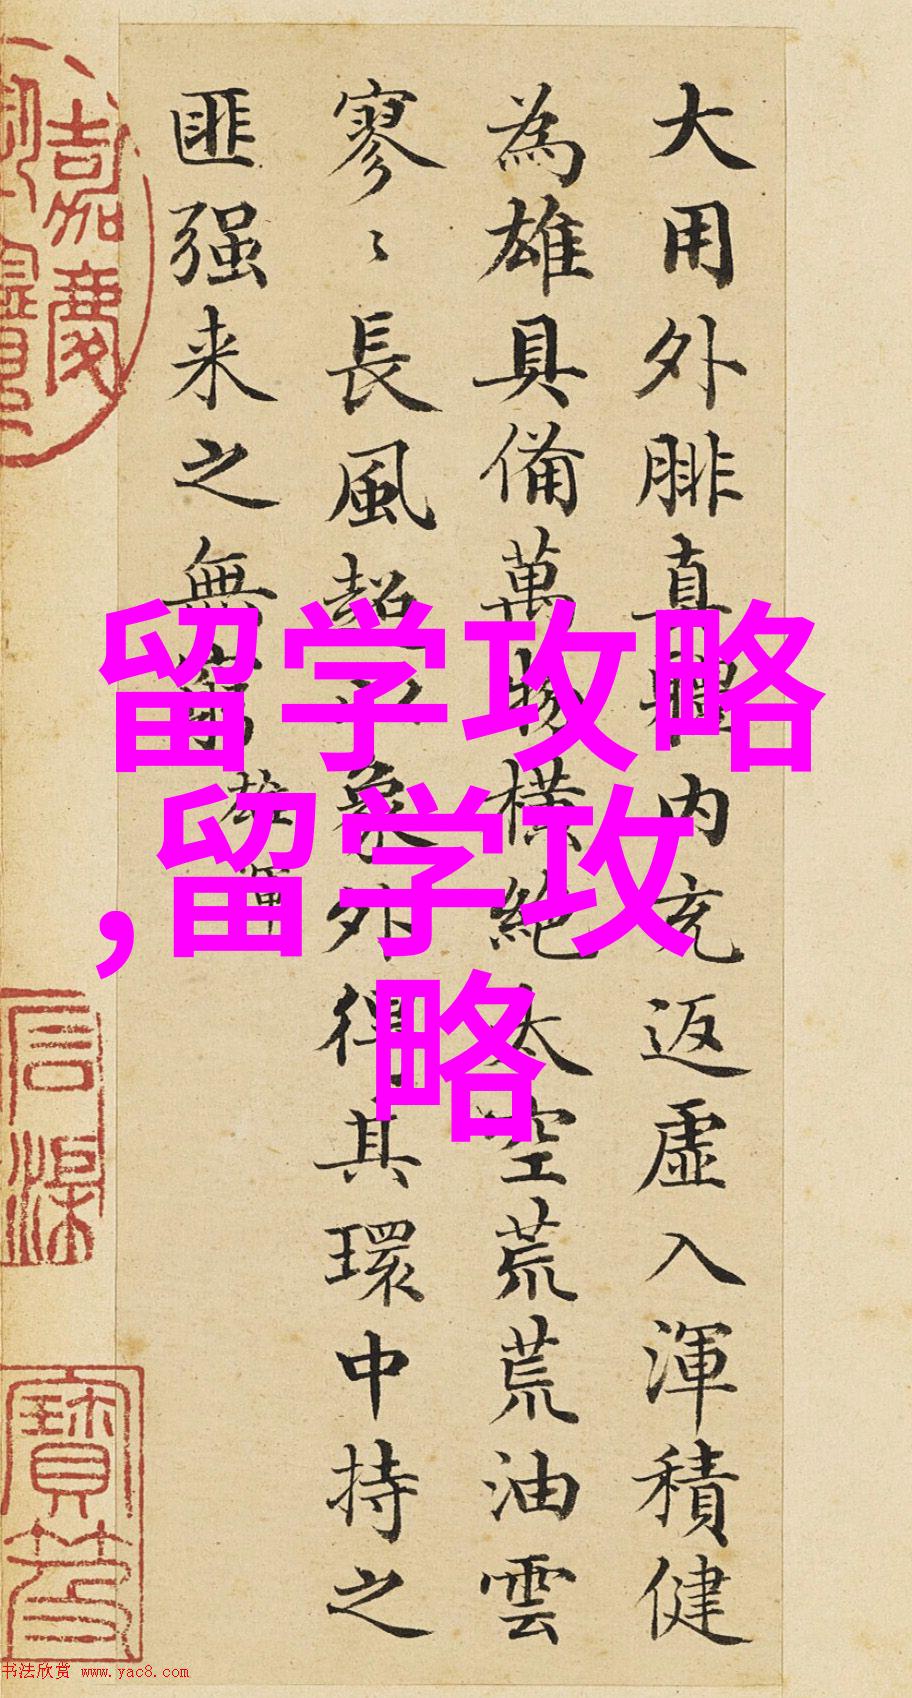 大用外腓真體内充返虛入渾積健
為雄具備萬物橫絶太空荒荒油雲
寥〻長風超以象外得其環中持之
匪强来之無窮
雄渾
留学攻略
,留学攻
略
嘉慶
石渠
寶笈
书法欣赏 www.yac8.com